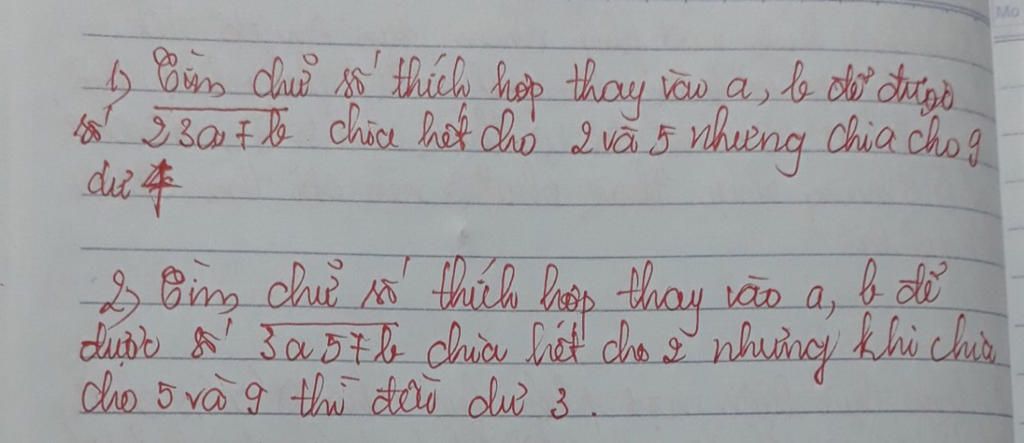 1) Tìm chữ số thích hợp thay vào a, b để được
số 23a7b chia hết cho 2 và 5 nhưng chia cho 9
dư 4
2) Tìm chữ số thích hợp thay vào a, b để
được số 3a57b chia hết cho 2 nhưng khi chia
cho 5 và 9 thì đều dư 3.